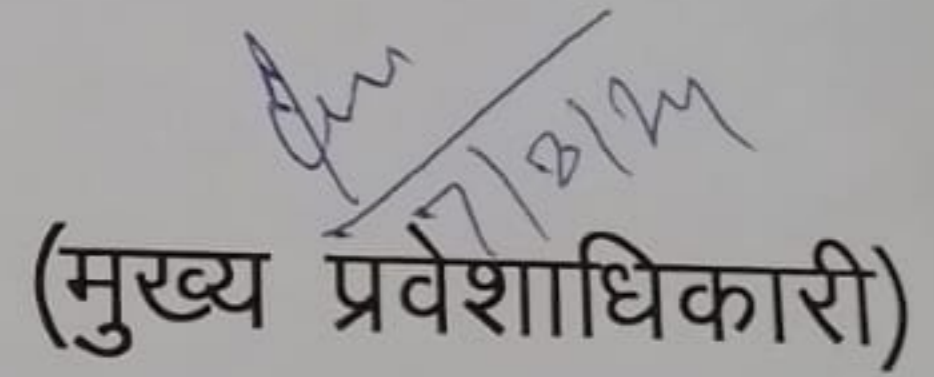 7/8/24
(मुख्य प्रवेशाधिकारी)